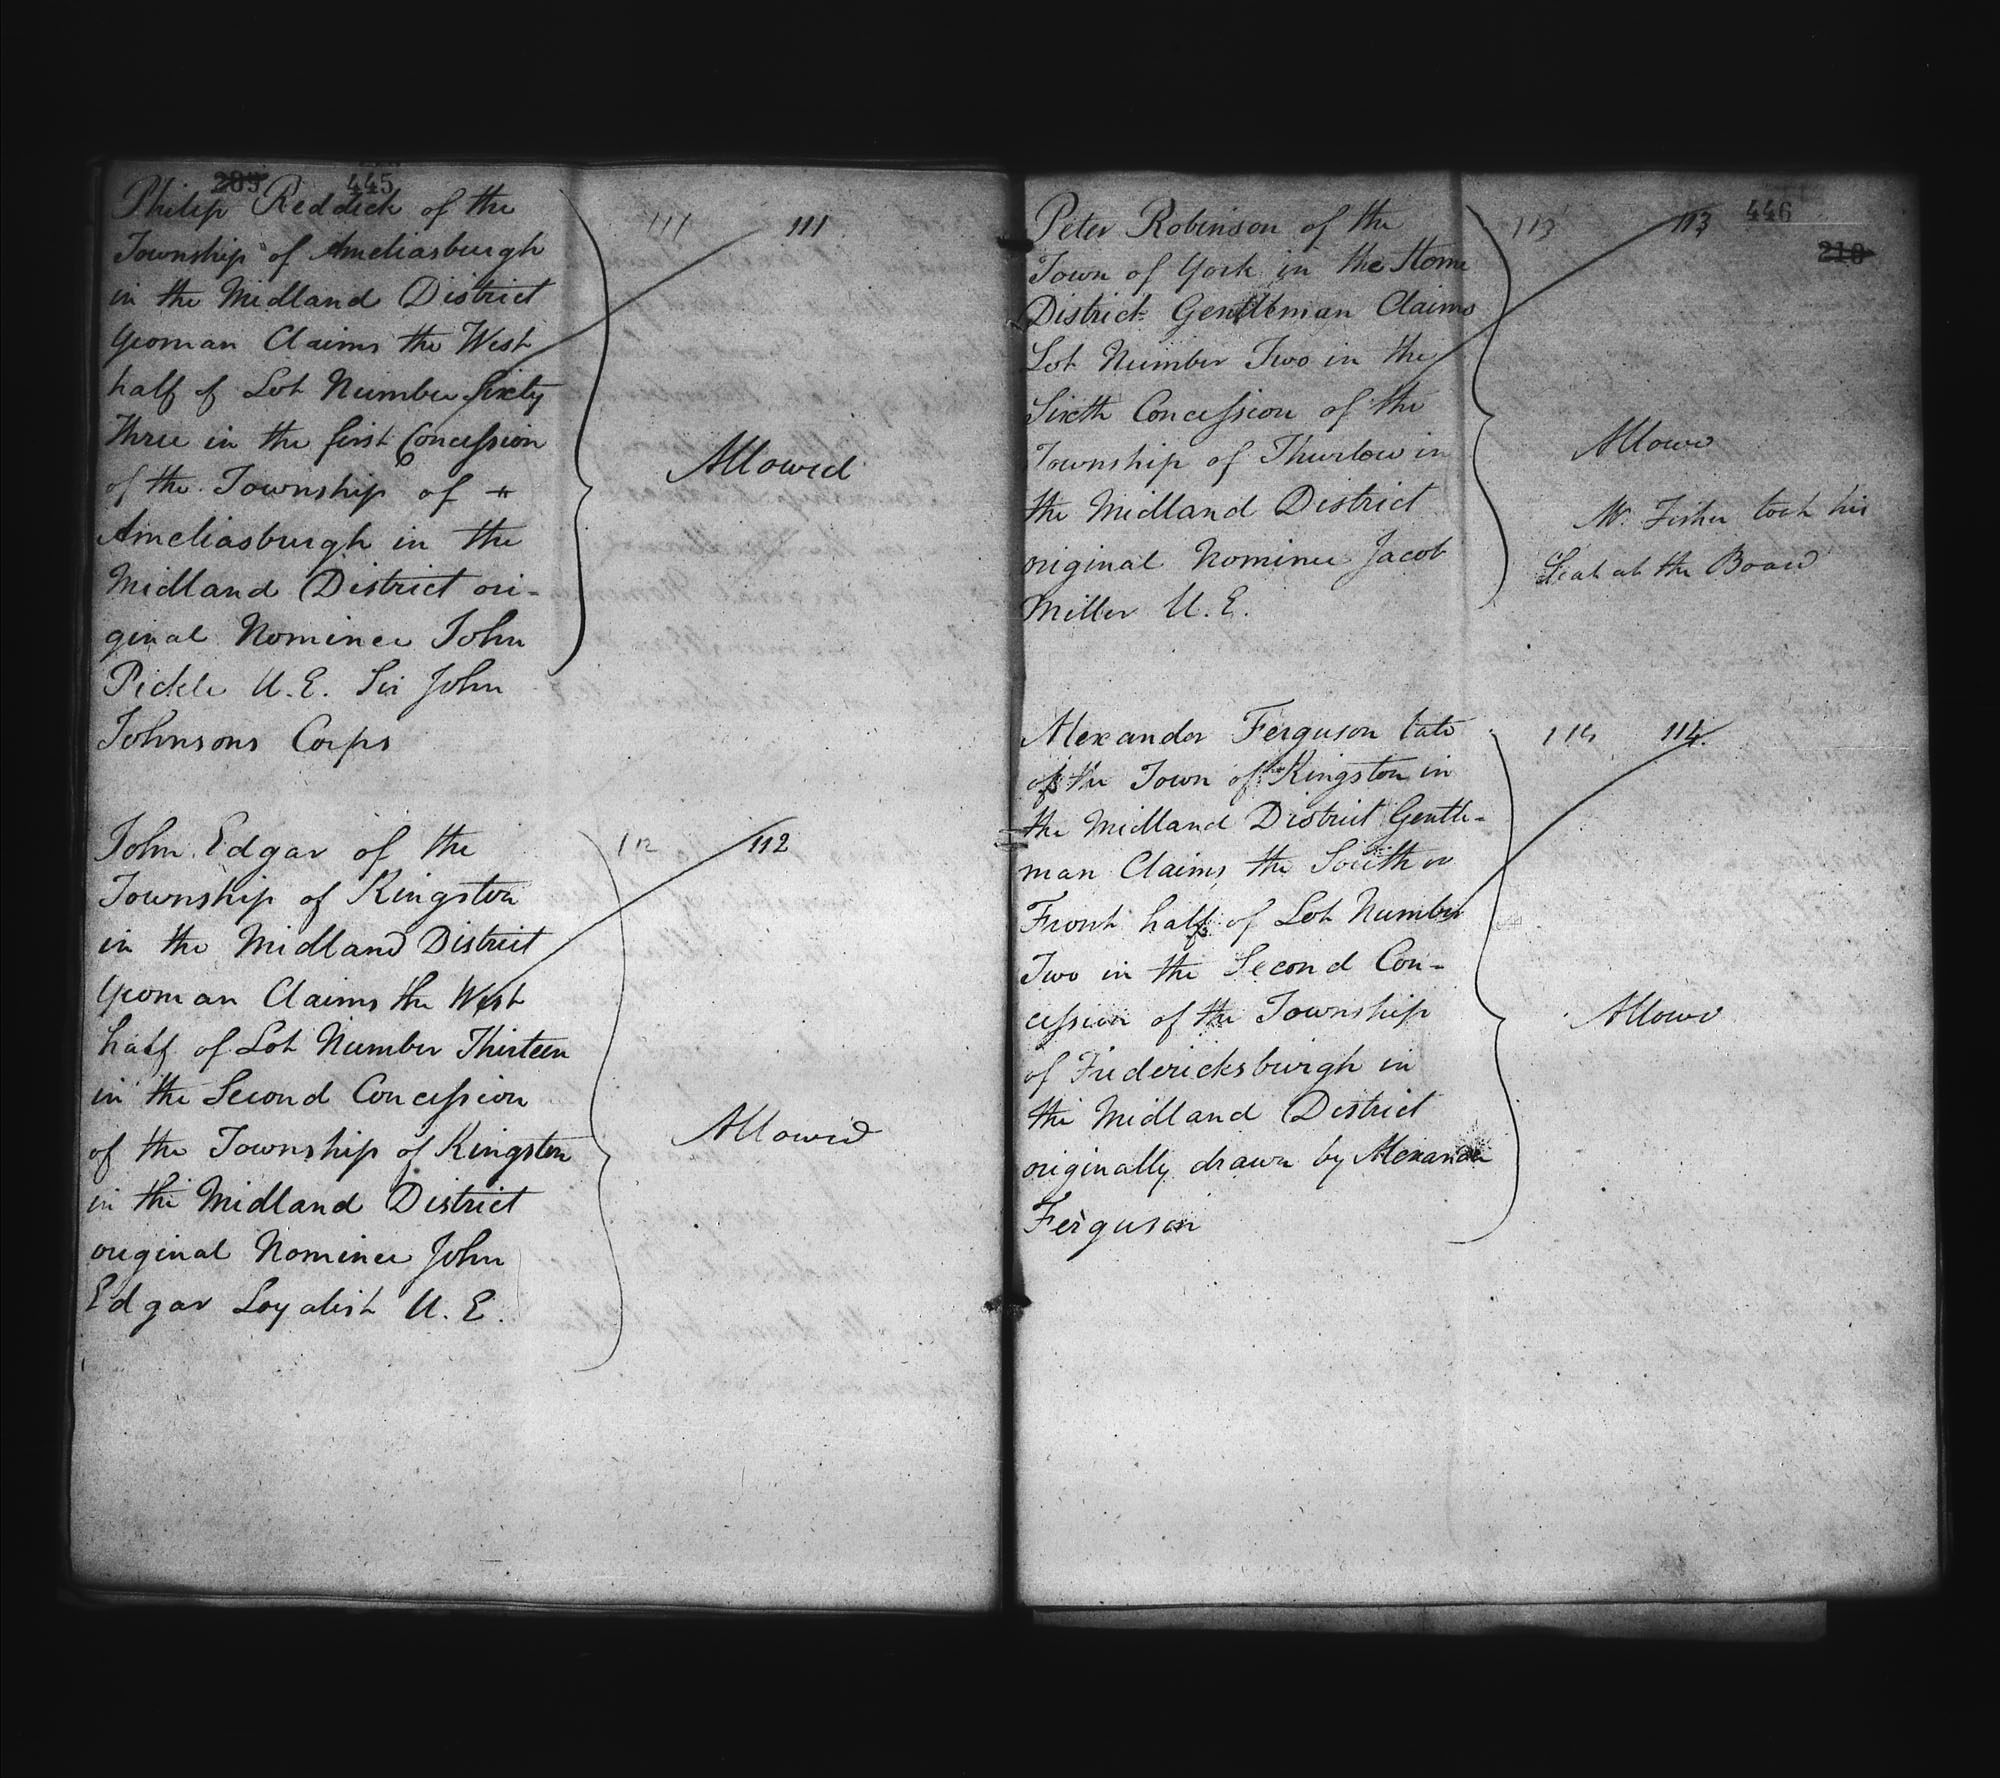 209 445
Philip Reddick of the
Township of Ameliasburgh
in the Midland District
Yeoman Claims the West
half of Lot Number Sixty
Three in the first Concession
of the Township of
Ameliasburgh in the
Midland District ori-
ginal Nominee John
Pickle U.E. Sir John
Johnsons Corps
111 111
Allowed
John Edgar of the
Township of Kingston
in the Midland District
Yeoman Claims the West
half of Lot Number Thirteen
in the Second Concession
of the Township of Kingston
in the Midland District
original Nominee John
Edgar Loyalist U.E.
112 112
Allowed
446
210
Peter Robinson of the
Town of York in the Home
District Gentleman Claims
Lot Number Two in the
Sixth Concession of the
Township of Thurlow in
the Midland District
original Nominee Jacob
Miller U.E.
113 113
Allowd
Mr. Fisher took his
Seat at the Board
Alexander Ferguson late
of the Town of Kingston in
the Midland District Gentle-
man Claims the South or
Front half of Lot Number
Two in the Second Con-
cession of the Township
of Fredericksburgh in
the Midland District
originally drawn by Alexander
Ferguson
114 114.
Allowd